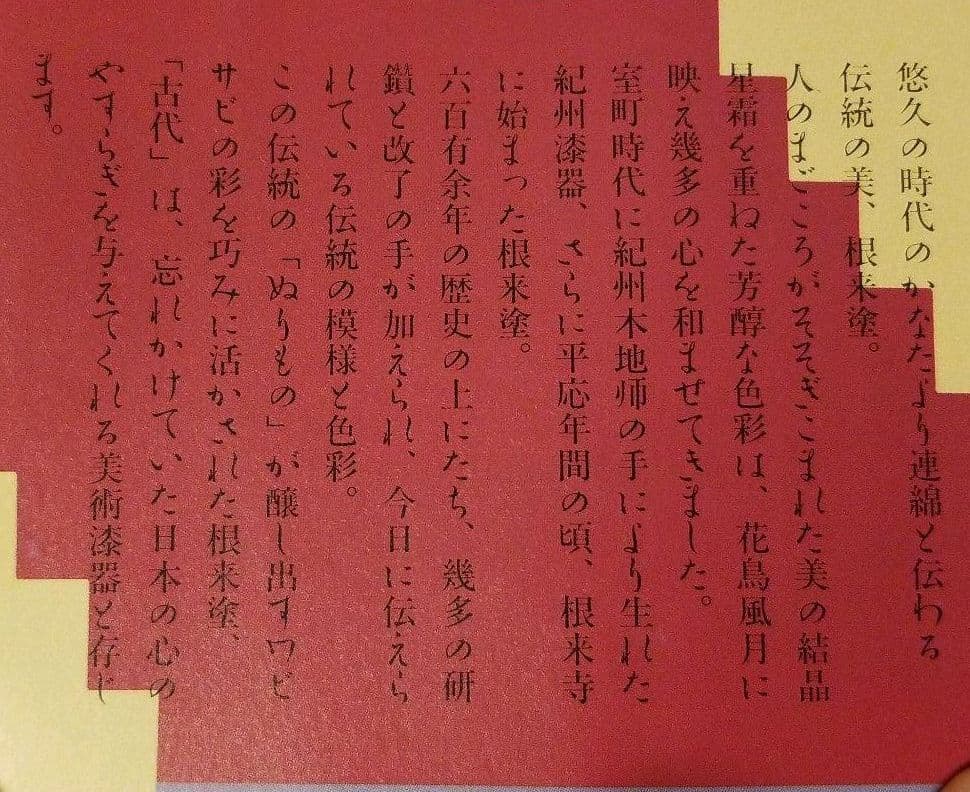 悠久の時代のかなたより連綿と伝わる
伝統の美、根来塗。
人のまごころがそそぎこまれた美の結晶
星霜を重ねた芳醇な色彩は、花鳥風月に
映え幾多の心を和ませてきました。
室町時代に紀州木地師の手により生れた
紀州漆器、さらに平応年間の頃、根来寺
に始まった根来塗。
六百有余年の歴史の上にたち、幾多の研
鑚と改了の手が加えられ、今日に伝えら
れている伝統の模様と色彩。
この伝統の「ぬりもの」が醸し出すワビ
サビの彩を巧みに活かされた根来塗、
「古代」は、忘れかけていた日本の心の
やすらぎを与えてくれる美術漆器と存じ
ます。